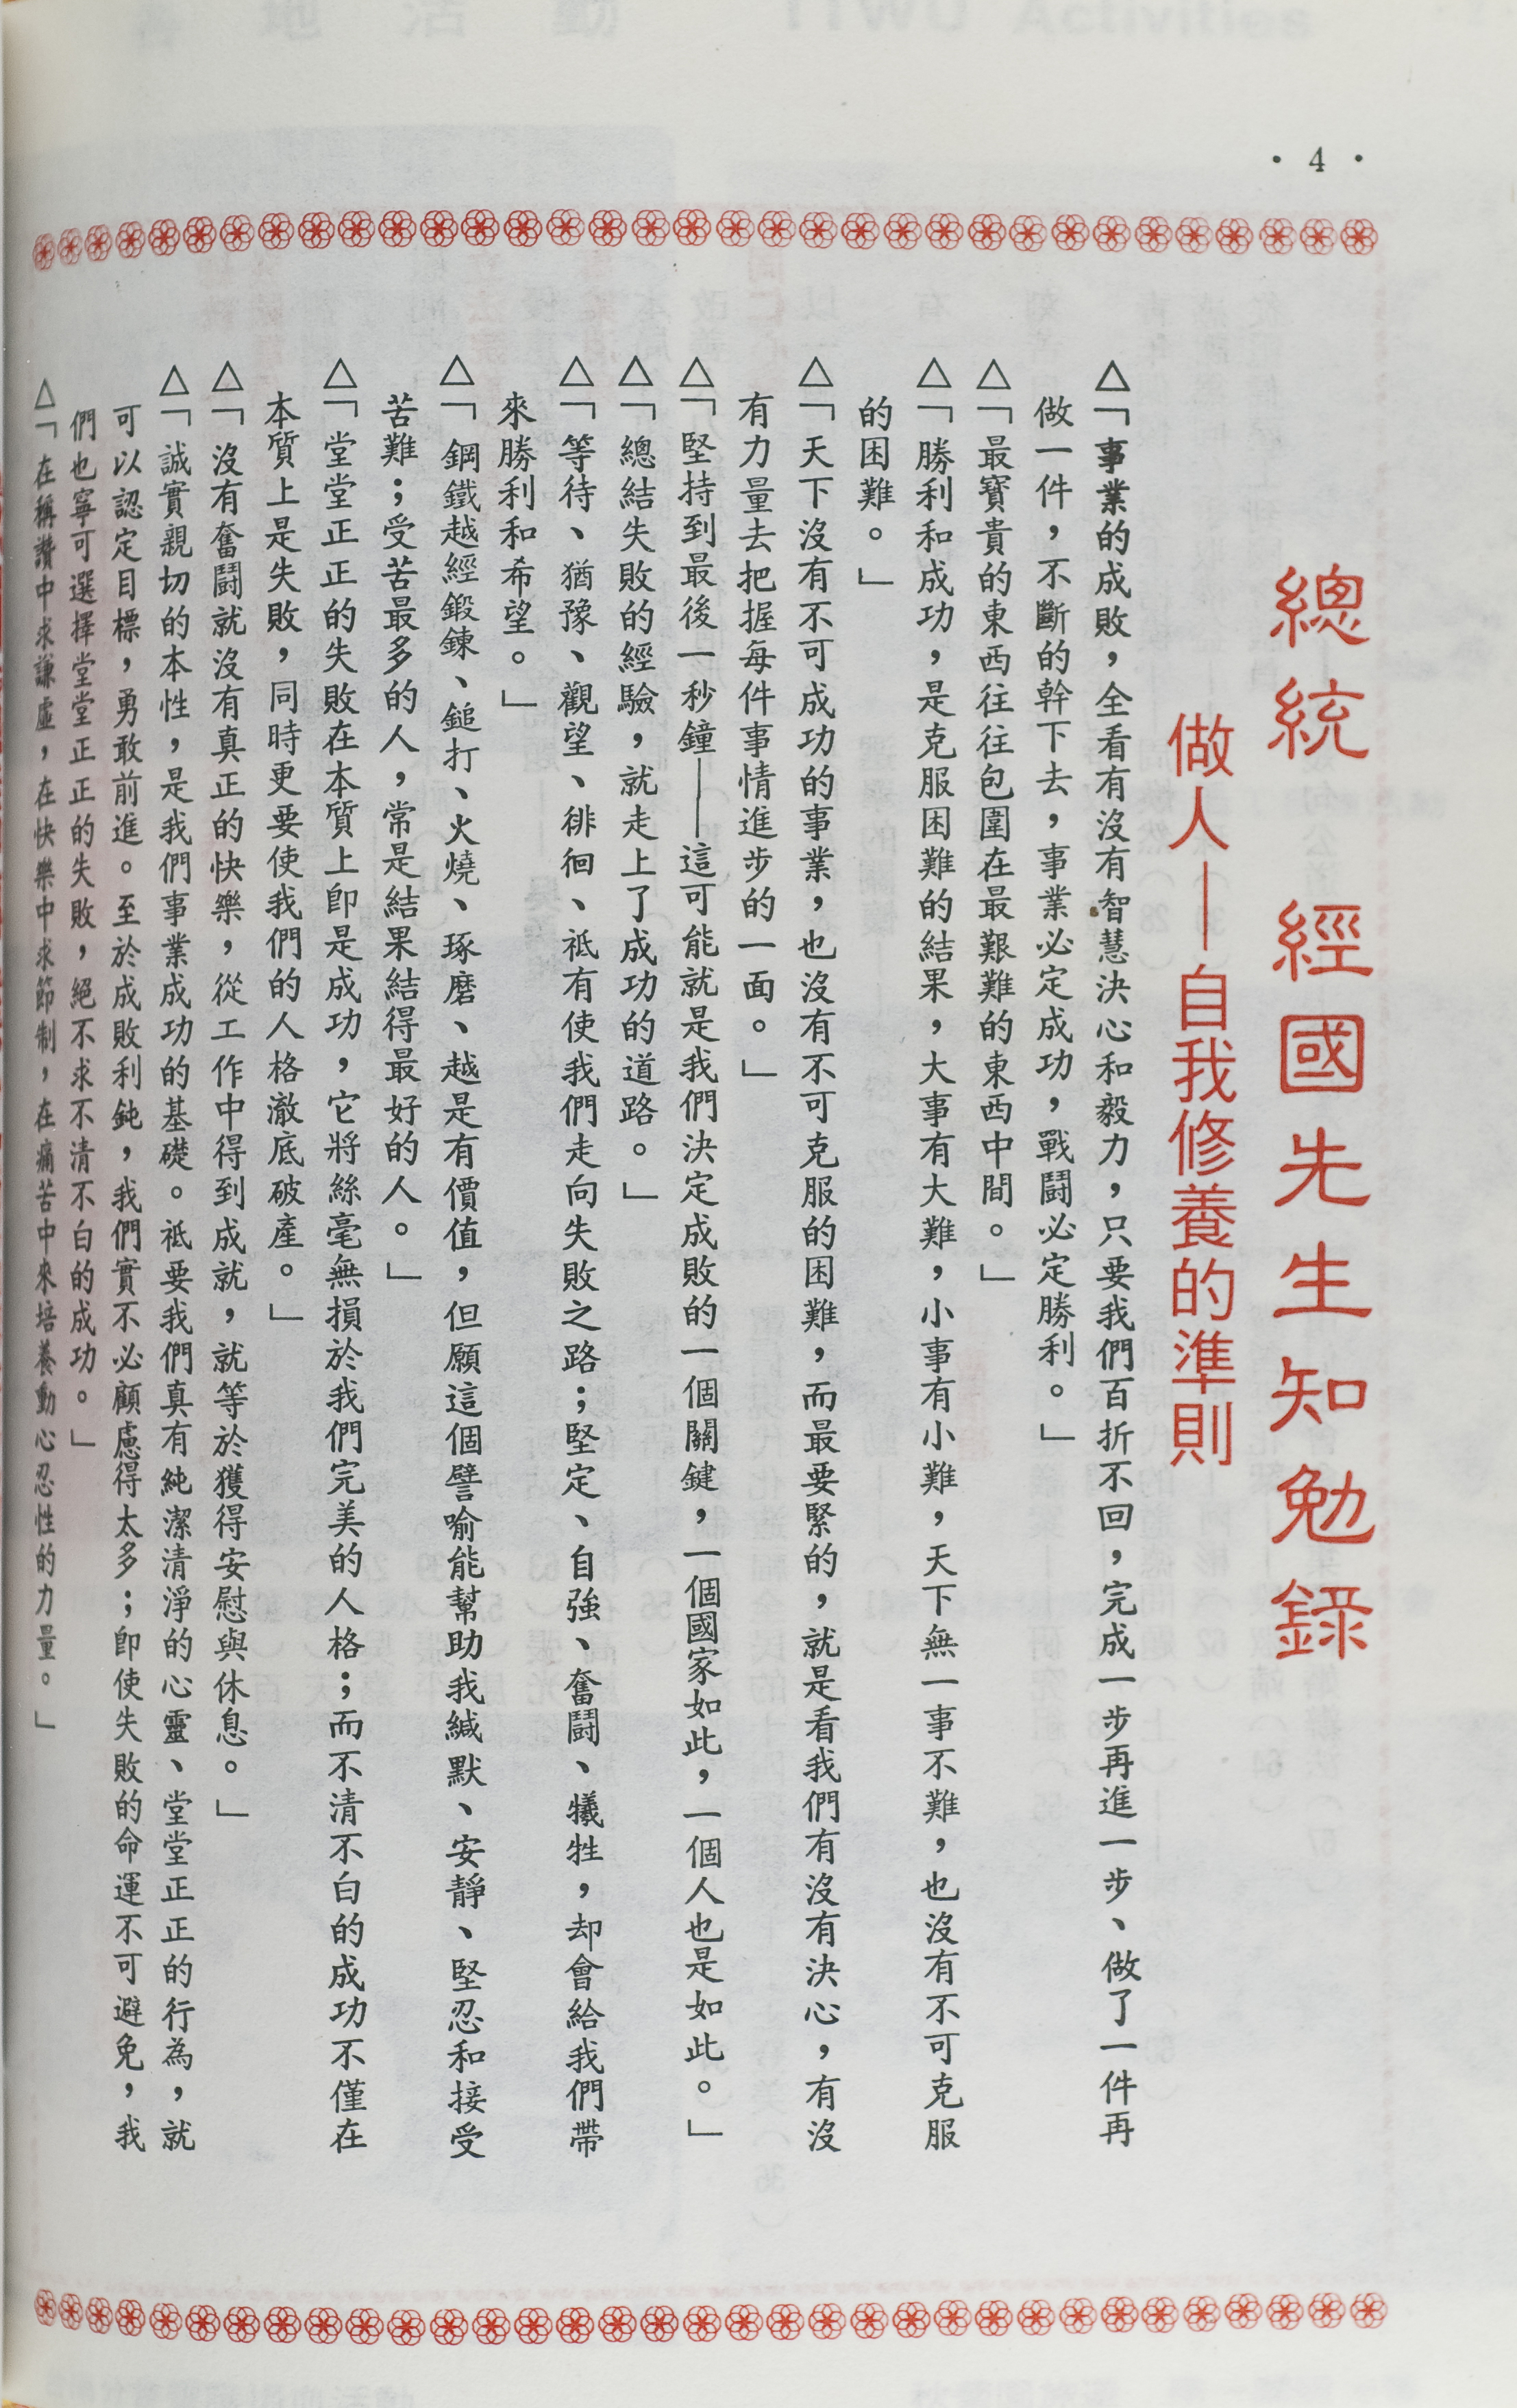 · 4 ·
總統 經國先生知勉錄
做人——自我修養的準則
△「事業的成敗，全看有沒有智慧決心和毅力，只要我們百折不回，完成一步再進一步、做了一件再
做一件，不斷的幹下去，事業必定成功，戰鬪必定勝利。」
△「最寶貴的東西往往包圍在最艱難的東西中間。」
△「勝利和成功，是克服困難的結果，大事有大難，小事有小難，天下無一事不難，也沒有不可克服
的困難。」
△「天下沒有不可成功的事業，也沒有不可克服的困難，而最要緊的，就是看我們有沒有決心，有沒
有力量去把握每件事情進步的一面。」
△「堅持到最後一秒鐘——這可能就是我們決定成敗的一個關鍵，一個國家如此，一個人也是如此。」
△「總結失敗的經驗，就走上了成功的道路。」
△「等待、猶豫、觀望、徘徊、祗有使我們走向失敗之路；堅定、自強、奮鬪、犧牲，却會給我們帶
來勝利和希望。」
△「鋼鐵越經鍛鍊、鎚打、火燒、琢磨、越是有價值，但願這個譬喻能幫助我緘默、安靜、堅忍和接受
苦難；受苦最多的人，常是結果結得最好的人。」
△「堂堂正正的失敗在本質上卽是成功，它將絲毫無損於我們完美的人格；而不清不白的成功不僅在
本質上是失敗，同時更要使我們的人格澈底破產。」
△「沒有奮鬪就沒有真正的快樂，從工作中得到成就，就等於獲得安慰與休息。」
△「誠實親切的本性，是我們事業成功的基礎。祗要我們真有純潔清淨的心靈、堂堂正正的行為，就
可以認定目標，勇敢前進。至於成敗利鈍，我們實不必顧慮得太多；卽使失敗的命運不可避免，我
們也寧可選擇堂堂正正的失敗，絕不求不清不白的成功。」
△「在稱讚中求謙虛，在快樂中求節制，在痛苦中來培養動心忍性的力量。」